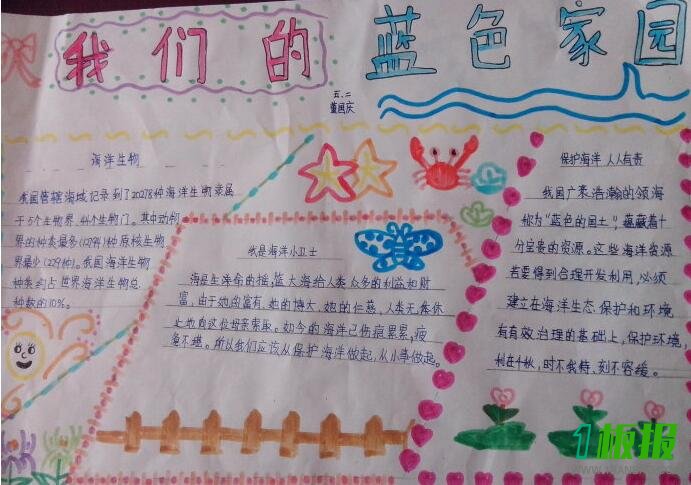 我们的 蓝色家园
五、二
董国庆
海洋生物
我国管辖海域记录到了20278种海洋生物隶属
于5个生物界、44个生物门。其中动物
界的种类最多(12794种)原核生物
界最少(229种)。我国海洋生物
种类约占世界海洋生物总
种数的10%。
我是海洋小卫士
海是生命的摇篮大海给人类众多的利益和财
富,由于她的富有,她的博大,她的仁慈,人类无休休
止地向这位母亲索取。如今的海洋已伤痕累累,疲
惫不堪。所以我们应该从保护海洋做起,从小事做起。
保护海洋 人人有责
我国广袤浩瀚的领海
称为“蓝色的国土”,蕴藏着十
分宝贵的资源。这些海洋资源
若要得到合理开发利用,必须
建立在海洋生态保护和环境
有有效治理的基础上,保护环境,
利在千秋,时不我待,刻不容缓。
1板报